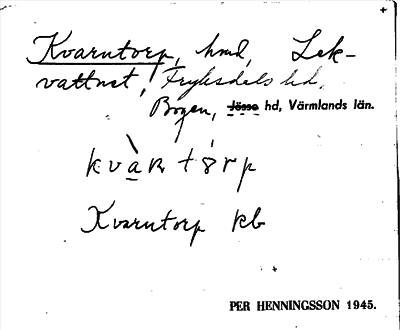 Kvarntorp, hmd, Lek-
vattnet, Fryksdals hd.
Bogen, Jösse hd, Värmlands län.
kvàṇtórp
Kvarntorp kb
PER HENNINGSSON 1945.